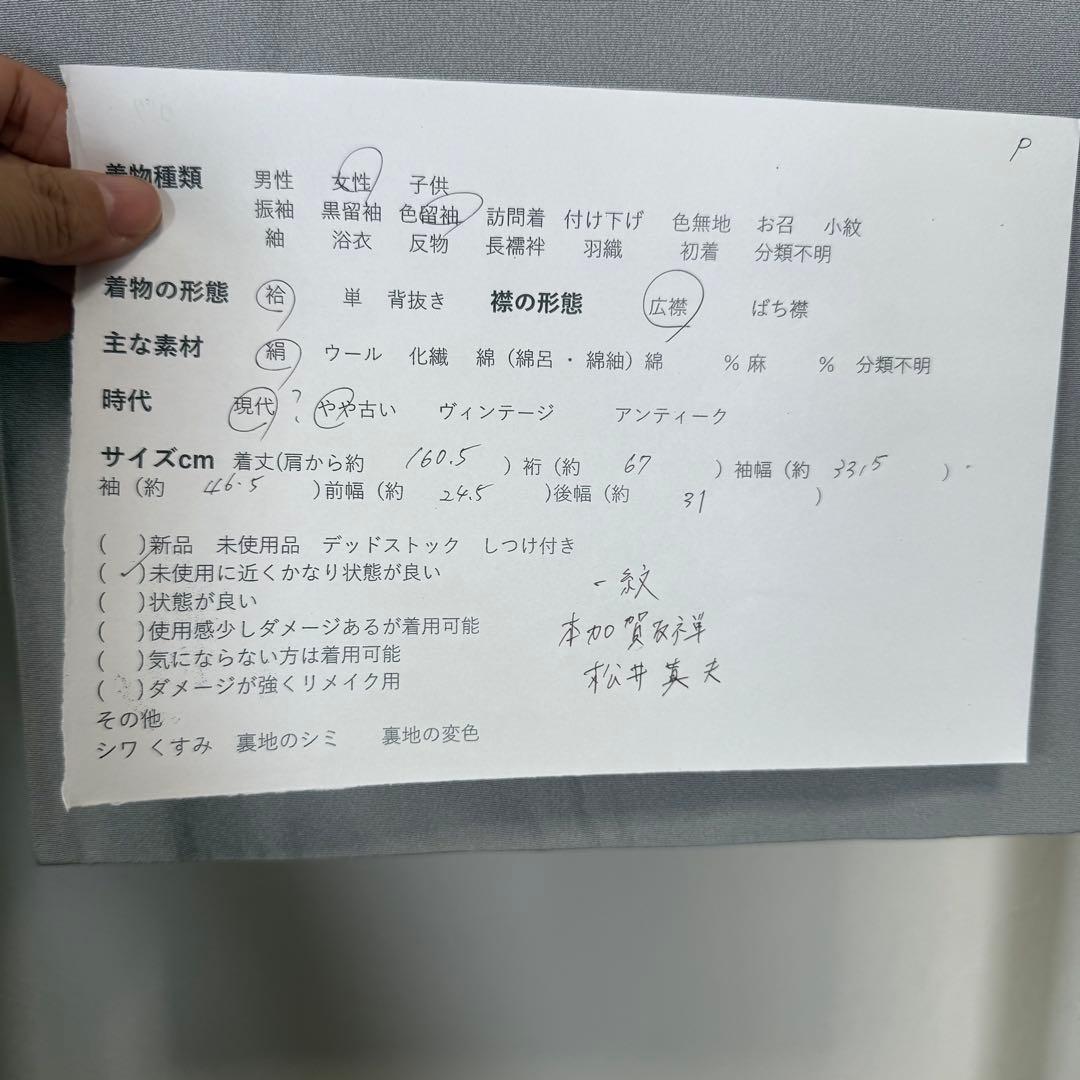 P
着物種類 男性 女性 子供
振袖 黒留袖 色留袖 訪問着 付け下げ 色無地 お召 小紋
紬 浴衣 反物 長襦袢 羽織 初着 分類不明
着物の形態 袷 単 背抜き 襟の形態 広襟 ばち襟
主な素材 絹 ウール 化繊 綿（綿呂・綿紬）綿 ％ 麻 ％ 分類不明
時代 現代 ? やや古い ヴィンテージ アンティーク
サイズcm 着丈(肩から約 160.5 ）裄（約 67 ）袖幅（約 33.5 ）
袖（約 46.5 ）前幅（約 24.5 )後幅（約 31 ）
( )新品 未使用品 デッドストック しつけ付き
( ✓ )未使用に近くかなり状態が良い
( )状態が良い
( )使用感少しダメージあるが着用可能
( )気にならない方は着用可能
( )ダメージが強くリメイク用
その他
シワ くすみ 裏地のシミ 裏地の変色
一紋
本加賀友禅
松井真夫